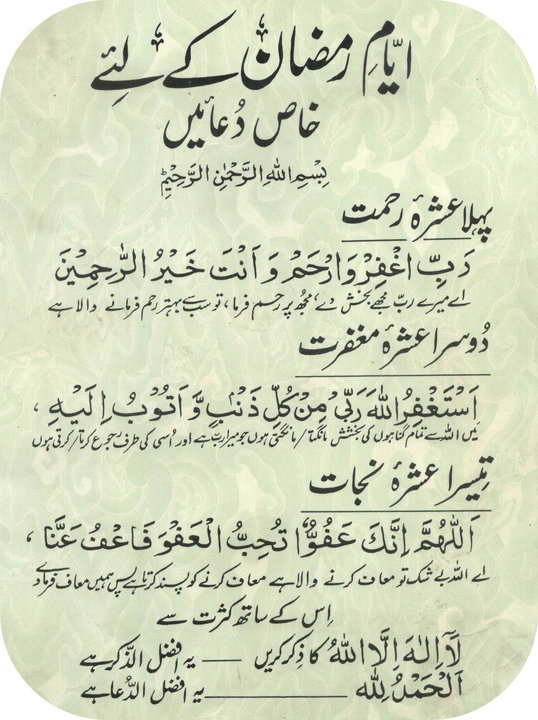 ایّامِ رمضان کے لئے
خاص دُعائیں
بِسْمِ اللهِ الرَّحْمٰنِ الرَّحِيْمِ
پہلا عشرۂ رحمت
رَبِّ اغْفِرْ وَارْحَمْ وَاَنْتَ خَيْرُ الرّٰحِمِيْنَ
اے میرے ربّ مجھے بخش دے، مجھ پر رحم فرما، تو سب سے بہتر رحم فرمانے والا ہے
دُوسرا عشرۂ مغفرت
اَسْتَغْفِرُ اللهَ رَبِّىْ مِنْ كُلِّ ذَنْۢبٍ وَّاَتُوْبُ اِلَيْهِ ،
میں اللہ سے تمام گناہوں کی بخشش مانگتا/مانگتی ہوں جو میرا ربّ ہے اور اُسی کی طرف رجوع کرتا/کرتی ہوں
تیسرا عشرۂ نجات
اَللّٰهُمَّ اِنَّكَ عَفُوٌّ تُحِبُّ الْعَفْوَ فَاعْفُ عَنَّا ،
اے اللہ بے شک تو معاف کرنے والا ہے معاف کرنے کو پسند کرتا ہے پس ہمیں معاف فرما دے
اِس کے ساتھ کثرت سے
لَآ اِلٰهَ اِلَّا اللهُ کا ذِکر کریں —— یہ افضل الذّکر ہے
اَلْحَمْدُ لِلّٰهِ —————— یہ افضل الدُّعا ہے